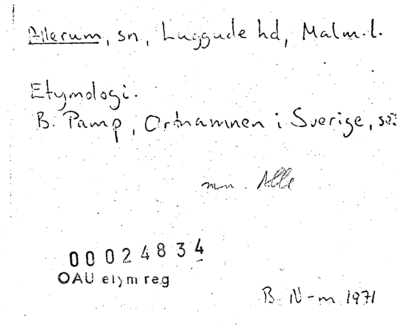 Allerum, sn, Luggude hd, Malm. l.
Etymologi.
B. Pamp, Ortnamnen i Sverige,
mn. Alle
00024834
OAU etym reg
B. N-m 1971